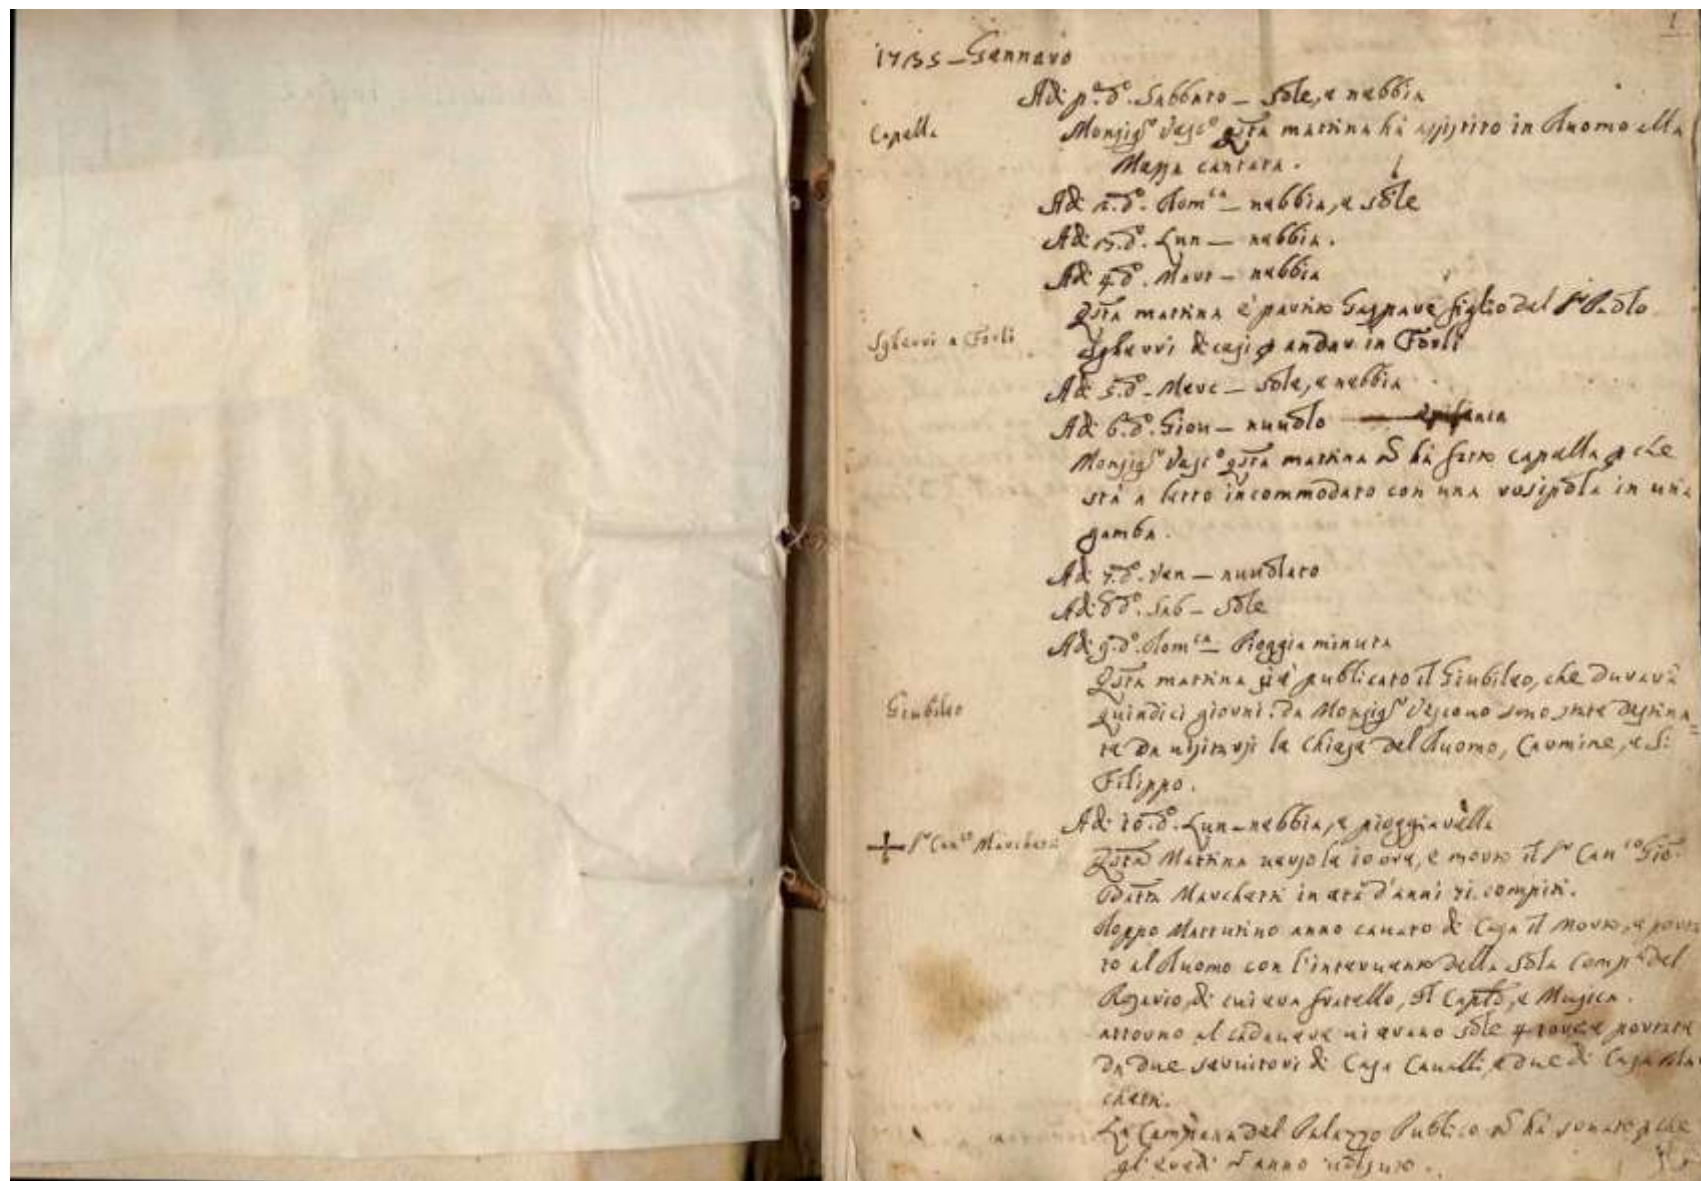 1
1735 – Gennaro
Adi p.º dº. Sabbato – Sole, e nebbia
Capella
Monsigr Vescº qsta mattina hà assistito in Duomo alla
Messa cantata.
Adi 2. dº. Domca – nebbia, e sole
Adi 3. dº. Lun – nebbia.
Adi 4. dº. Mart – nebbia
Qsta mattina è partito Gaspare figlio del Sr Paolo
Sgharri a Forlì
Sgharri di casi p andar in Forlì
Adi 5. dº – Merc – Sole, e nebbia
Adi 6. dº. Giou – nuuolo Epifania
Monsigr Vescº qsta mattina ñ hà fatto capella p che
stà a letto incommodato con una rosipola in una
gamba.
Adi 7. dº. Ven – nuuolato
Adi 8 dº. Sab – Sole
Adi 9. dº. Domca – Pioggia minuta
Qsta mattina si è publicato il Giubileo, che durarà
Giubileo
quindici giorni: da Monsigr Vescouo sono state destina=
te da uisitarsi le chiese del Duomo, Carmine, e S:
Filippo.
Adi 10. dº. Lun – nebbia, e pioggiarella
Sr Canco Marchetti
Qsta Mattina uerso le 10 ore, è morto il Sr Canco Gio:
Batta Marchetti in età d'anni 71. compiti.
Doppo Mattutino anno cauato di Casa il morto, e porta
to al Duomo con l'interuento della sola Compa del
Rosario, di cui era fratello, il Caplo, e Musica.
attorno al cadauere ui erano sole 4 torce portate
da due seruitori di Casa Caualli, e due di Casa Mar
chetti.
La Campana del Palazzo Publico ñ hà sonato p che
gl'eredi ñ anno uoluto.